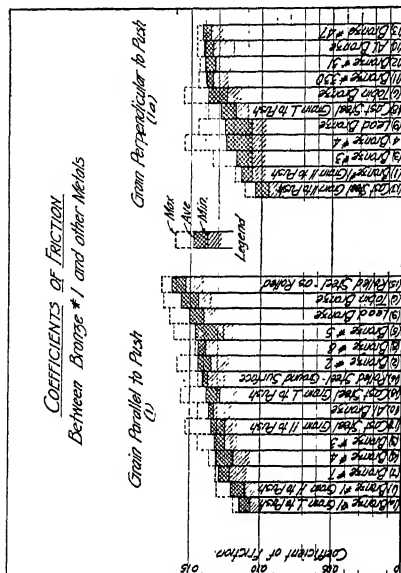 COEFFICIENTS OF FRICTION
Between Bronze #1 and other Metals
Grain Parallel to Push
(1)
Grain Perpendicular to Push
(10)
Max
Ave
Min.
Legend
Coefficient of Friction.
.15
.10
.05
0
Bronze #1 Grain ⊥ to Push
Bronze #1 Grain II to Push
Bronze #7
Bronze #4
Bronze #3
Cast Steel Grain II to Push
Al Bronze
Cast Steel Grain ⊥ to Push
Rolled Steel-Ground Surface
Bronze #2
Bronze #8
Bronze #5
(9) Lead Bronze
(6) Tobin Bronze
(15) Rolled Steel-As Rolled
Cast Steel Grain II to Push
(1) Bronze #1 Grain II to Push
(3) Bronze #3
4 Bronze #4
(9) Lead Bronze
Cast Steel Grain ⊥ to Push
(6) Tobin Bronze
(11) Bronze #330
(12) Bronze #31
(10) Al Bronze
(13) Bronze #47